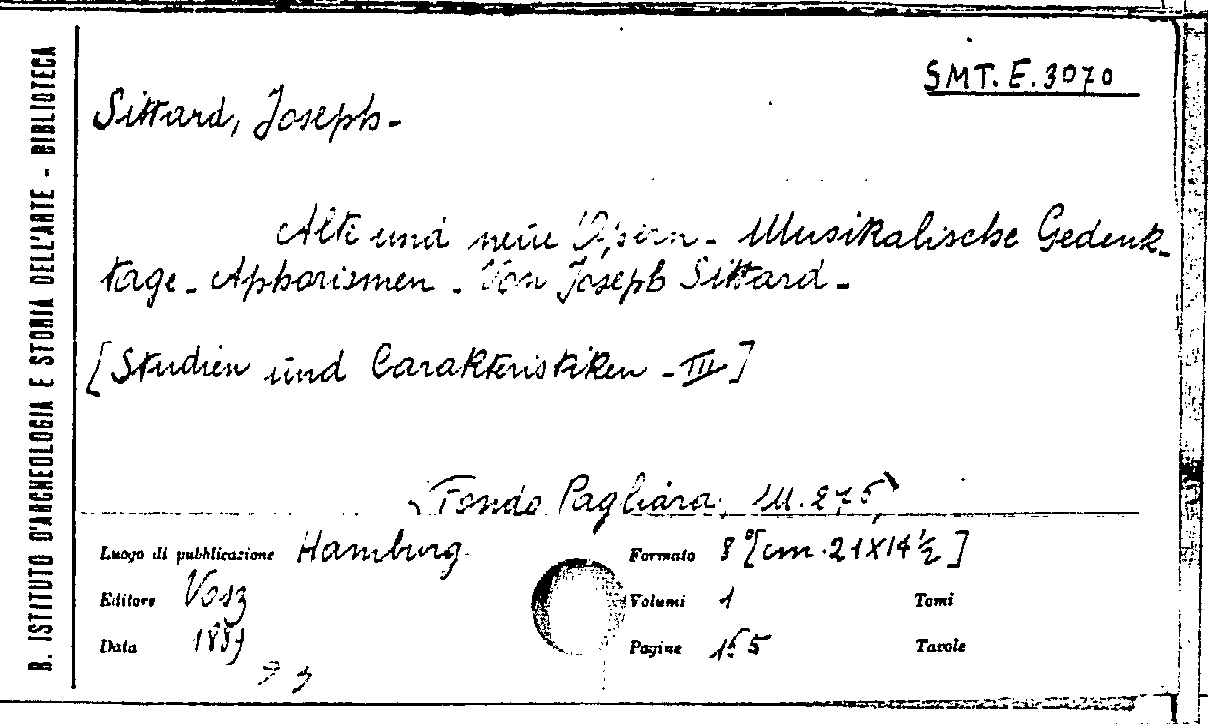 SMT. E. 3070
Sittard, Joseph-
Alte und neue Opern - Musikalische Gedenk-
tage - Aphorismen - Von Joseph Sittard -
[Studien und Carakteristiken - III]
(Fondo Pagliara, M. 275)
Luogo di pubblicazione Hamburg. Formato 8° [cm. 21X14 ½]
Editore Vosz Volumi 1 Tomi
Data Pagine 155 Tavole
R. ISTITUTO D'ARCHEOLOGIA E STORIA DELL'ARTE - BIBLIOTECA